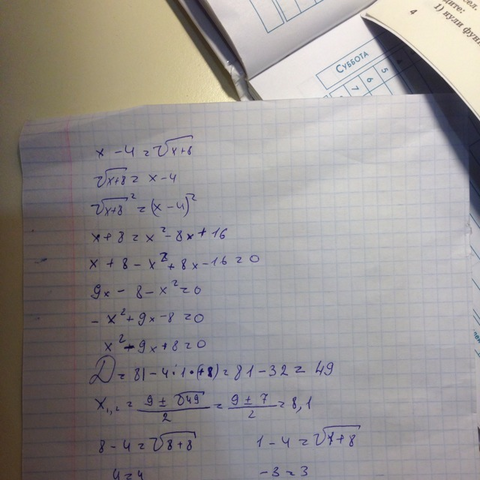 сел.
ите:
1) нули фун
4
СУББОТА
4
5
6
7
x - 4 = √x+8
√x+8 = x - 4
√x+8² = (x - 4)²
x + 8 = x² - 8x + 16
x + 8 - x² + 8x - 16 = 0
9x - 8 - x² = 0
- x² + 9x - 8 = 0
x² - 9x + 8 = 0
D = 81 - 4·1·(+8) = 81 - 32 = 49
x₁,₂ = (9 ± √49)/2 = (9 ± 7)/2 = 8, 1
8 - 4 = √8+8 1 - 4 = √1+8
4 = 4 -3 = 3